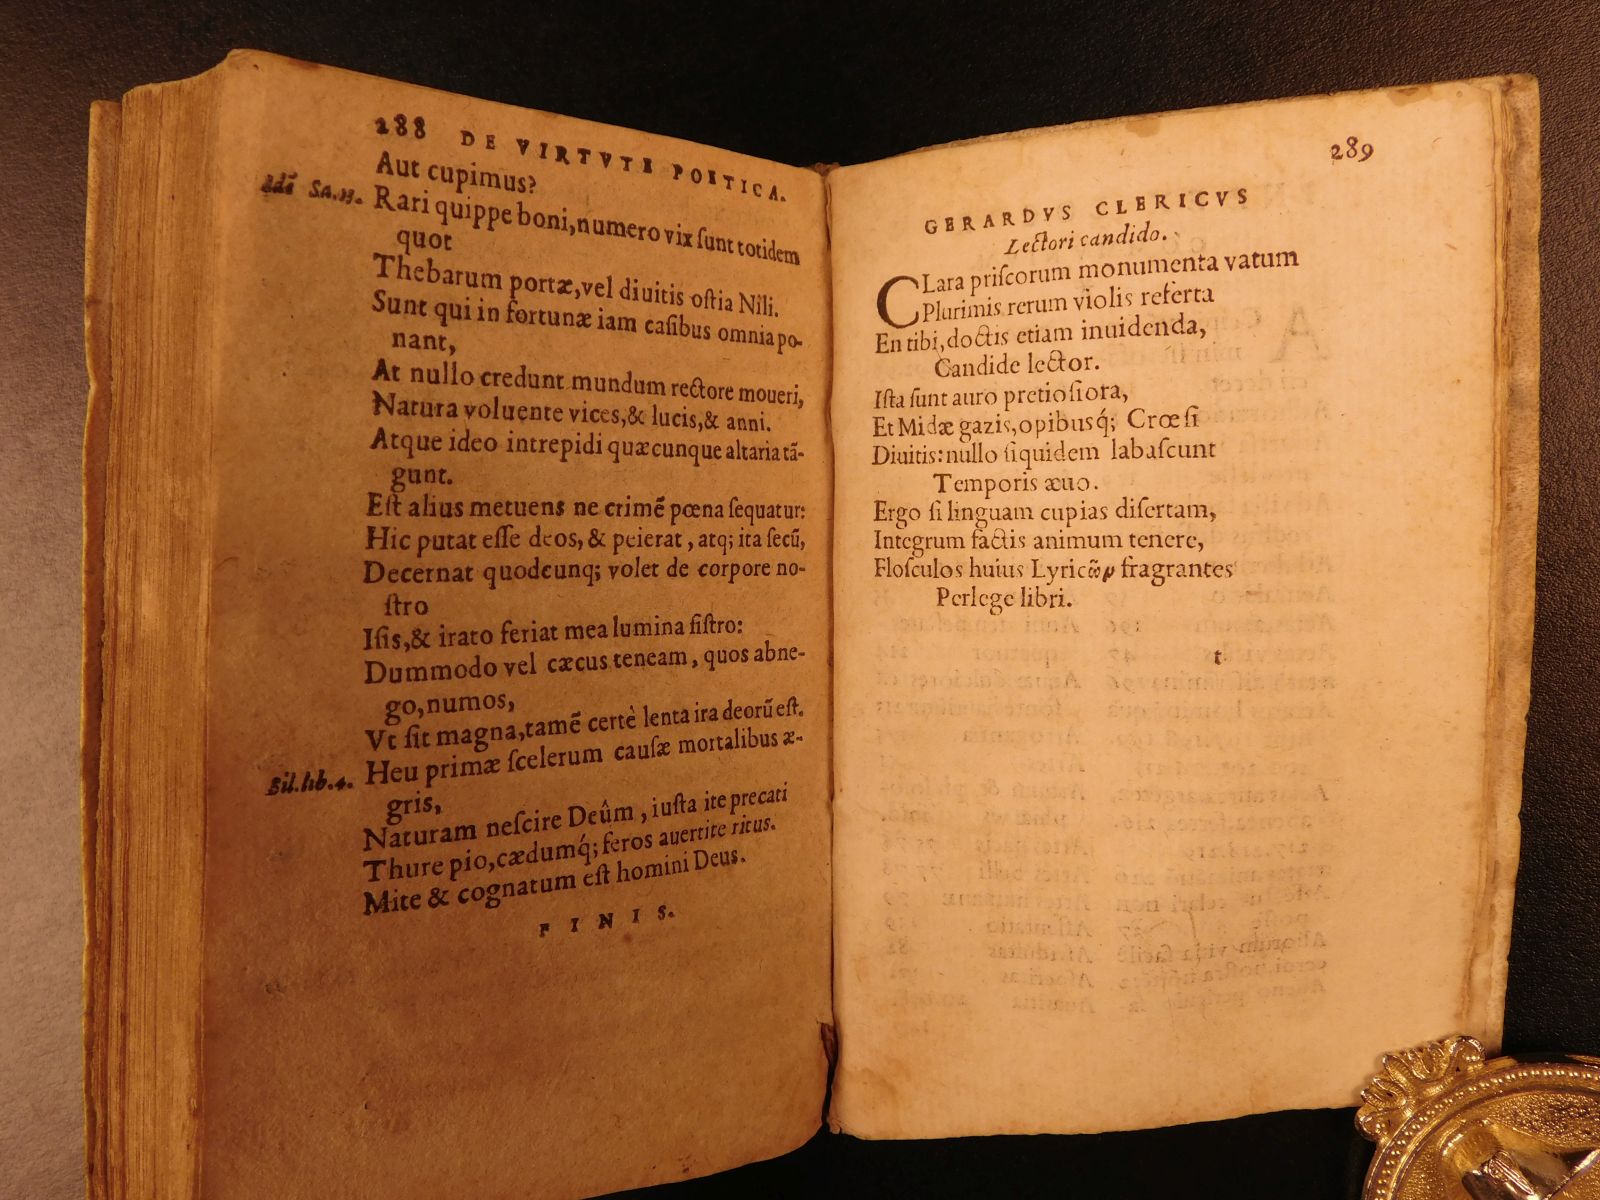 288 DE VIRTVTE POETICA.
Aut cupimus?
Idē Sa. 13. Rari quippe boni, numero vix ſunt totidem
quot
Thebarum portæ, vel diuitis oſtia Nili.
Sunt qui in fortunæ iam caſibus omnia po-
nant,
At nullo credunt mundum rectore moueri,
Natura voluente vices, & lucis, & anni.
Atque ideo intrepidi quæcunque altaria tā-
gunt.
Eſt alius metuens ne crimē pœna ſequatur:
Hic putat eſſe deos, & peierat, atq; ita ſecū,
Decernat quodcunq; volet de corpore no-
ſtro
Iſis, & irato feriat mea lumina ſiſtro:
Dummodo vel cæcus teneam, quos abne-
go, numos,
Vt ſit magna, tamē certè lenta ira deorū eſt.
Sil. lib. 4. Heu primæ ſcelerum cauſæ mortalibus æ-
gris,
Naturam neſcire Deûm, iuſta ite precati
Thure pio, cædumq́; feros auertite ritus.
Mite & cognatum eſt homini Deus.
FINIS.
289
GERARDVS CLERICVS
Lectori candido.
CLara priſcorum monumenta vatum
Plurimis rerum violis referta
En tibi, doctis etiam inuidenda,
Candide lector.
Iſta ſunt auro pretioſiora,
Et Midæ gazis, opibusq́; Crœſi
Diuitis: nullo ſiquidem labaſcunt
Temporis æuo.
Ergo ſi linguam cupias diſertam,
Integrum factis animum tenere,
Floſculos huius fragrantes
Perlege libri.
t